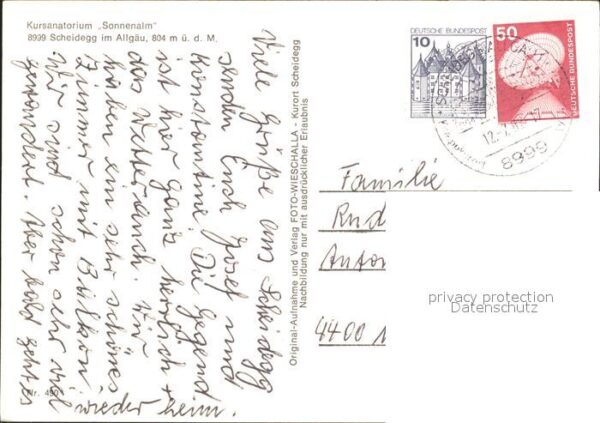 Kursanatorium „Sonnenalm"
8999 Scheidegg im Allgäu, 804 m ü. d. M.
Viele Grüße aus Scheidegg
senden Euch Josef und
Konstantine. Die Gegend
ist hier ganz herrlich +
das Wetter auch. Wir
haben ein sehr schönes
Zimmer mit Balkon.
Wir sind schon sehr viel
gewandert. Aber bald geht es
wieder heim.
Nr. 490
Original-Aufnahme und Verlag FOTO-WIESCHALLA - Kurort Scheidegg
Nachbildung nur mit ausdrücklicher Erlaubnis
10
DEUTSCHE BUNDESPOST
50
DEUTSCHE BUNDESPOST
8999
Familie
Rud
Anton
4400
privacy protection
Datenschutz